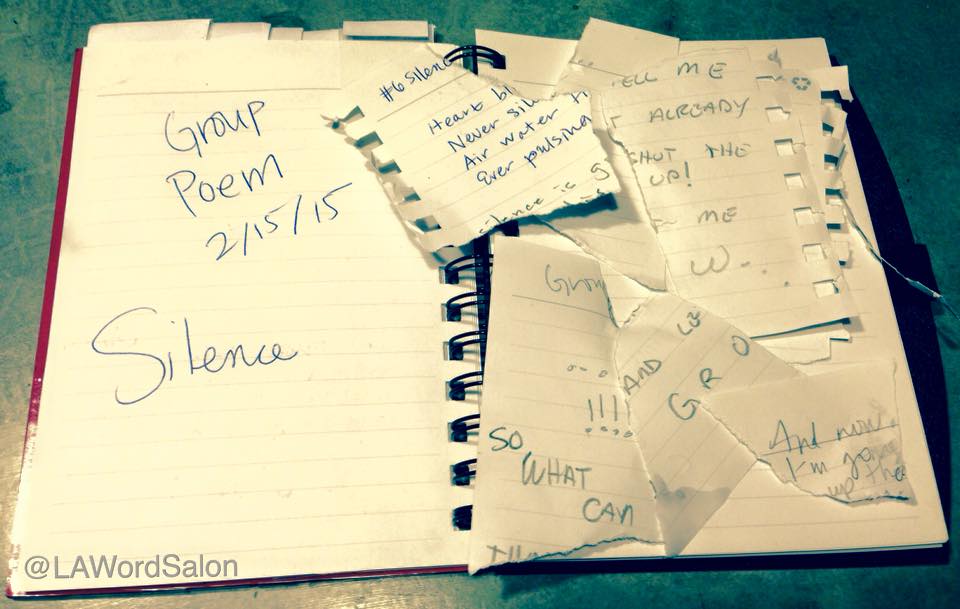 Group
Poem
2/15/15
Silence
#6 Silenc
Heart bl
Never sil
Air water
Ever pulsing
ELL ME
ALREADY
SHUT THE
UP!
ME
W..
Grou
!!!!
SO,
WHAT
CAN
AND LE
G R O
And now,
I'm
up the
@LAWordSalon